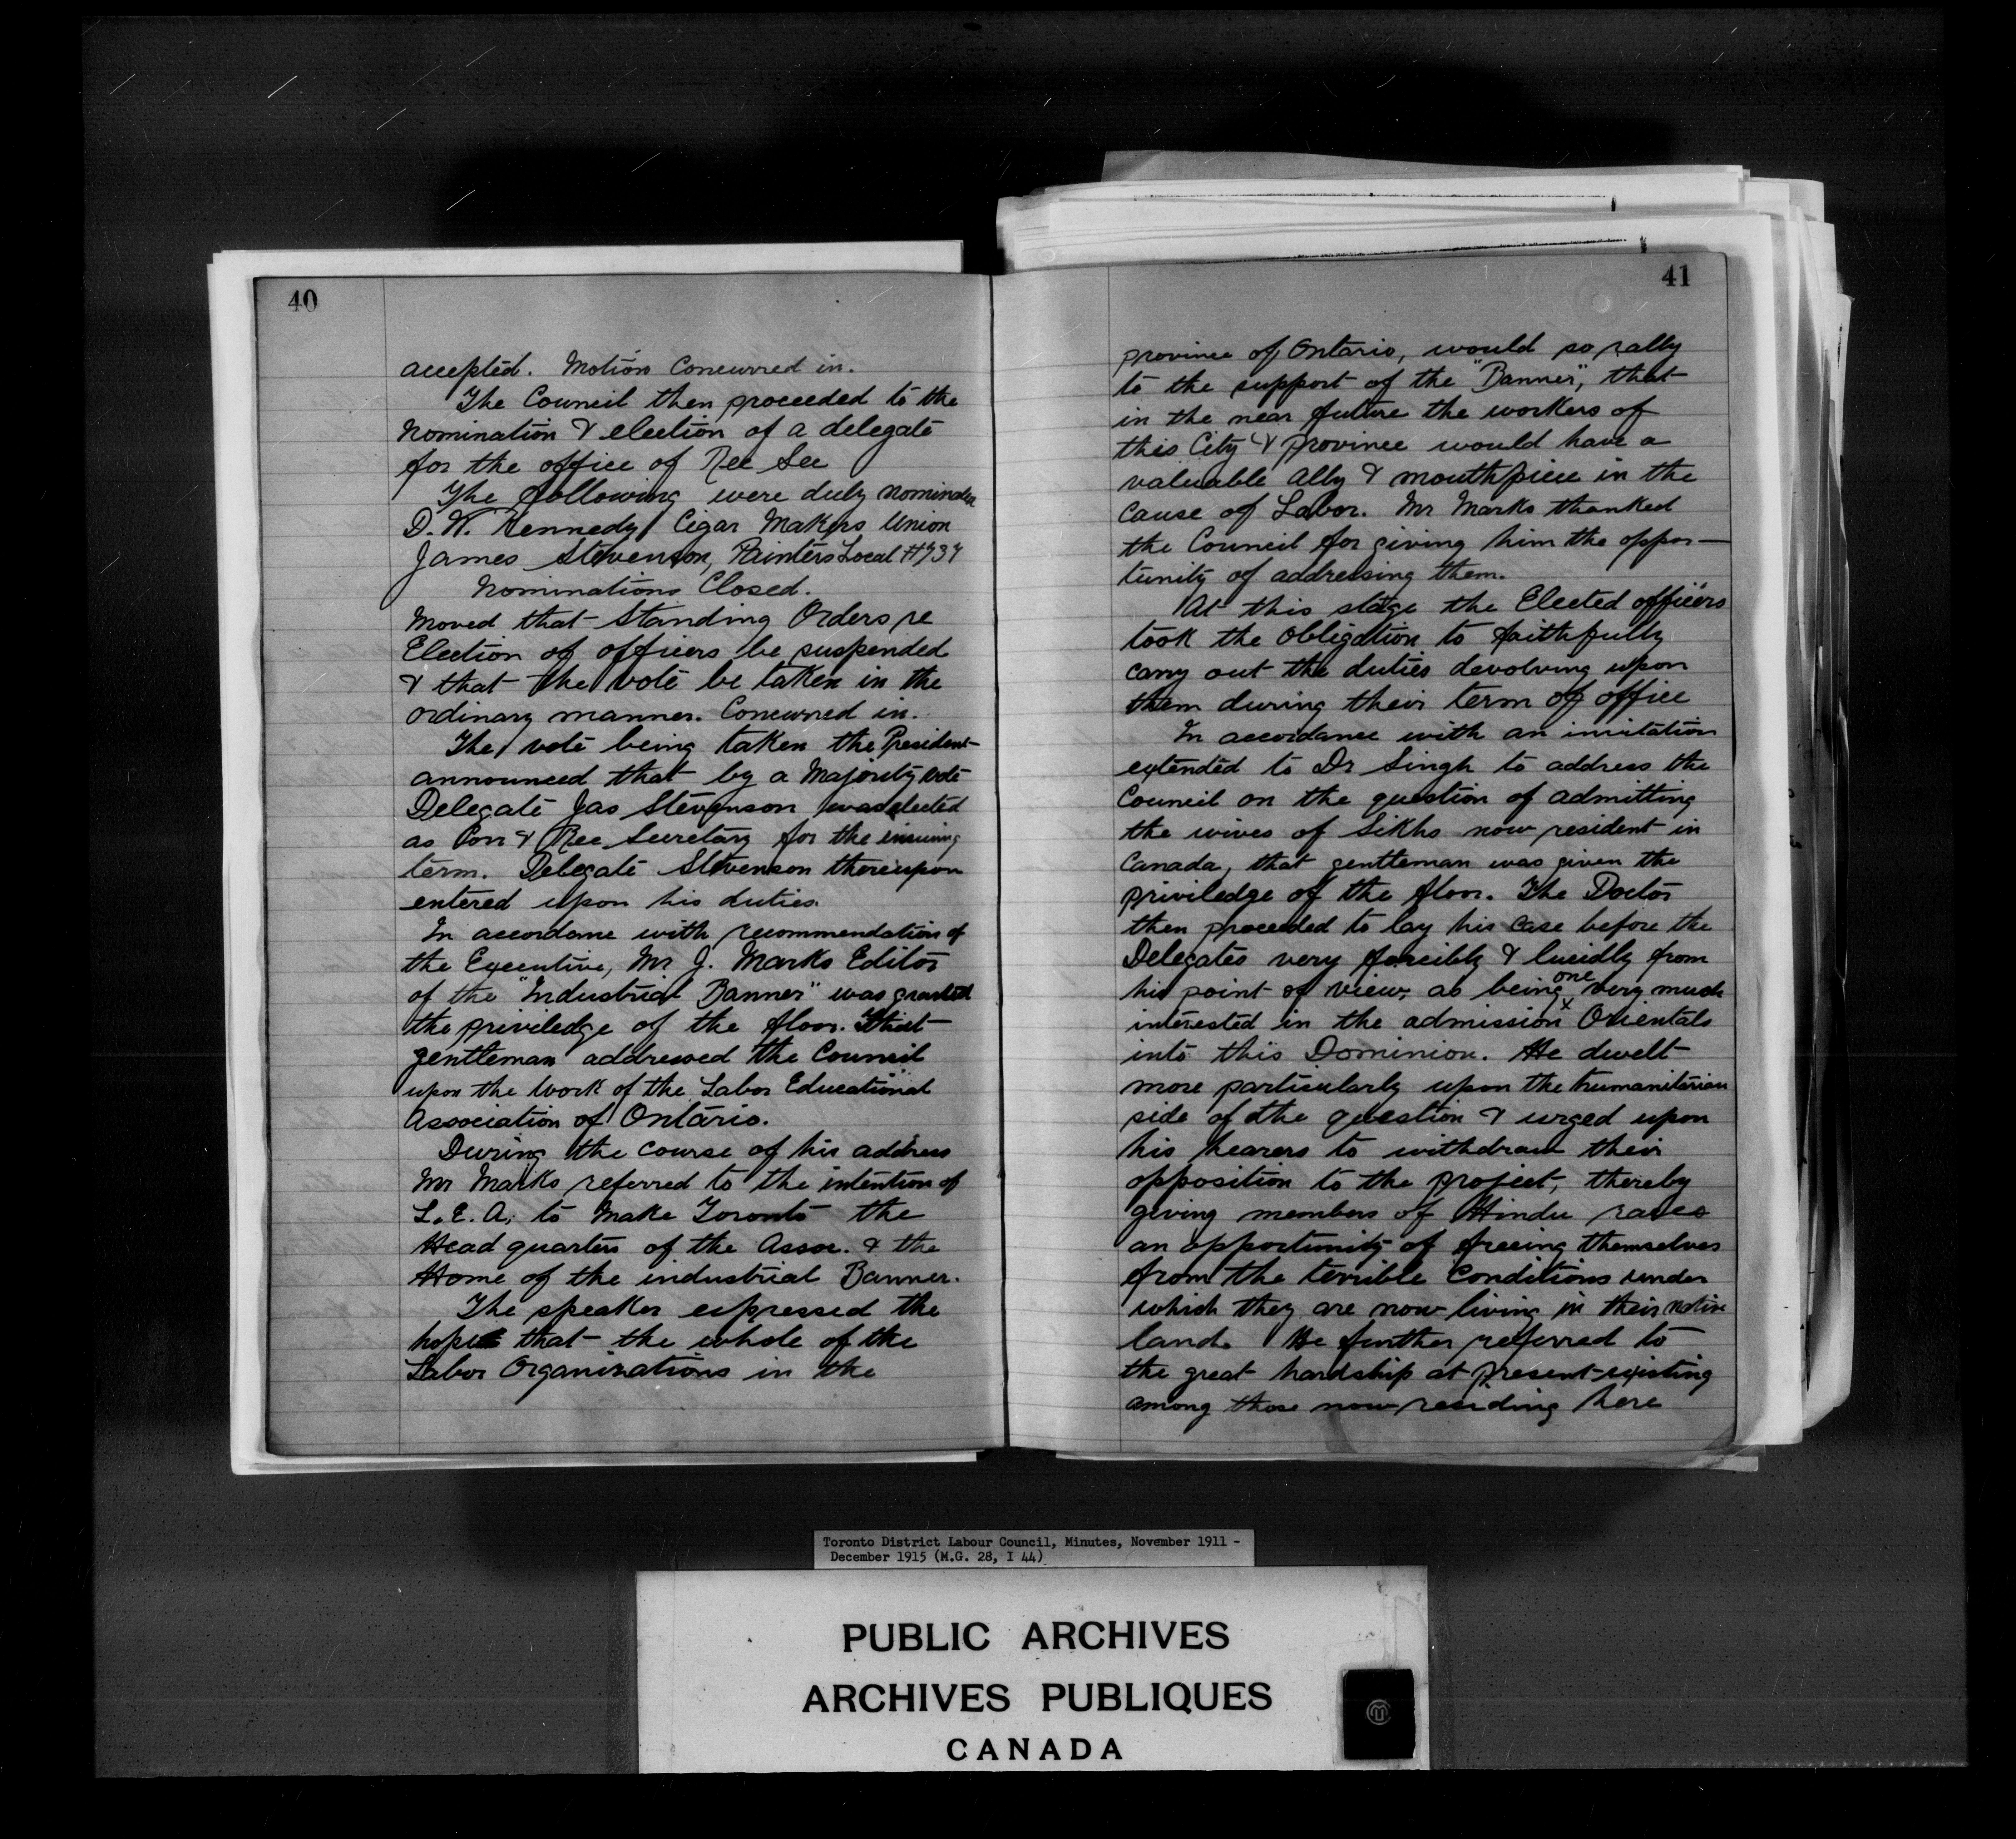 40
accepted. Motion Concurred in.
The Council then proceeded to the
Nomination & election of a delegate
for the office of Rec Sec
The following were duly nominated
D. W. Kennedy Cigar Makers Union
James Stevenson, Painters Local #737
Nominations Closed.
Moved that Standing Orders re
Election of officers be suspended
& that the vote be taken in the
ordinary manner. Concurred in.
The vote being taken the President
announced that by a Majority vote
Delegate Jas Stevenson was elected
as Corr & Rec Secretary for the ensuing
term. Delegate Stevenson thereupon
entered upon his duties.
In accordance with recommendation of
the Executive, Mr J. Marks Editor
of the "Industrial Banner" was granted
the priviledge of the floor. That
gentleman addressed the Council
upon the Work of the Labor Educational
Association of Ontario.
During the course of his address
Mr Marks referred to the intention of
L.E.A. to Make Toronto the
Head quarters of the Assoc. & the
Home of the industrial Banner.
The speaker expressed the
hope that the whole of the
Labor Organizations in the
41
province of Ontario, would so rally
to the support of the "Banner", that
in the near future the workers of
this City & province would have a
valuable Ally & mouthpiece in the
Cause of Labor. Mr Marks thanked
the Council for giving him the oppor-
tunity of addressing them.
At this stage the Elected officers
took the Obligation to faithfully
carry out the duties devolving upon
them during their term of office
In accordance with an invitation
extended to Dr Singh to address the
Council on the question of admitting
the wives of Sikhs now resident in
Canada, that gentleman was given the
priviledge of the floor. The Doctor
then proceeded to lay his case before the
Delegates very forcibly & lucidly from
his point of view, as being one very much
interested in the admission Orientals
into this Dominion. He dwelt
more particularly upon the humanitarian
side of the question & urged upon
his hearers to withdraw their
opposition to the project, thereby
giving members of Hindu races
an opportunity of freeing themselves
from the terrible Conditions under
which they are now living in their native
land. He further referred to
the great hardship at present existing
among those now residing here
Toronto District Labour Council, Minutes, November 1911 -
December 1915 (M.G. 28, I 44)
PUBLIC ARCHIVES
ARCHIVES PUBLIQUES
CANADA